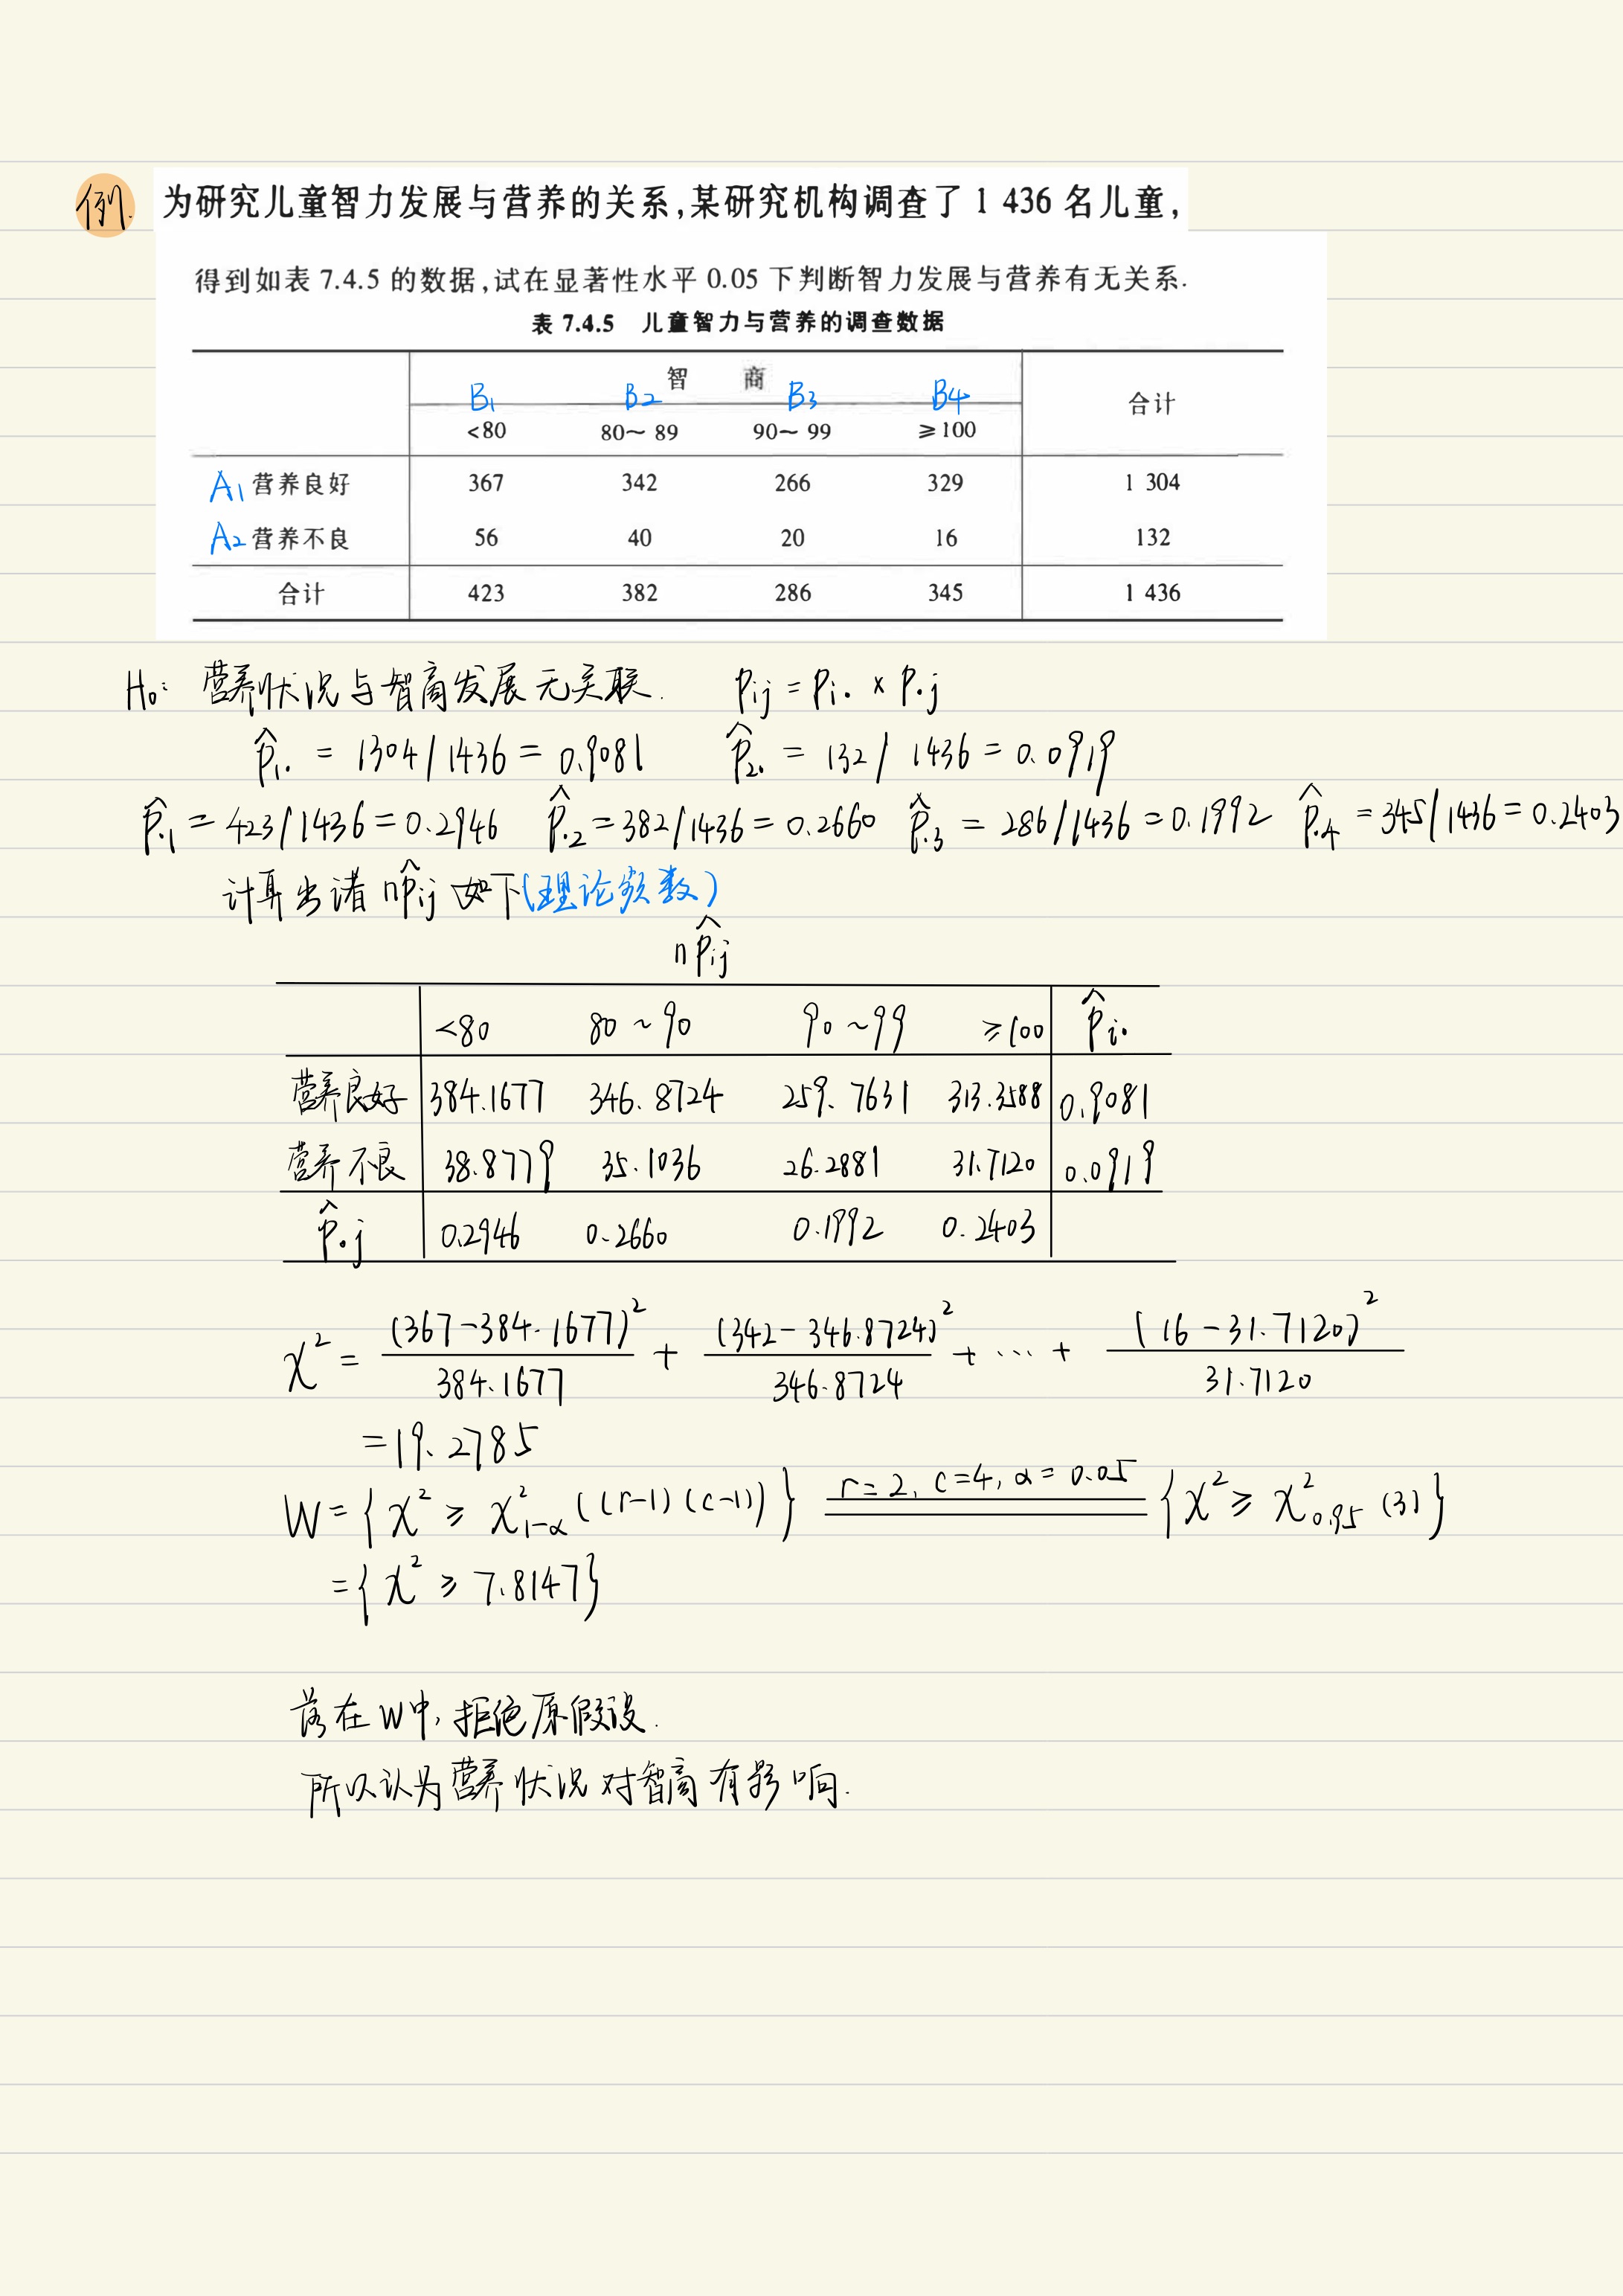 例. 为研究儿童智力发展与营养的关系,某研究机构调查了 1 436 名儿童,
得到如表 7.4.5 的数据,试在显著性水平 0.05 下判断智力发展与营养有无关系.
表 7.4.5 儿童智力与营养的调查数据
智 商 合计
B₁ B₂ B₃ B₄
<80 80~89 90~99 ≥100
A₁ 营养良好 367 342 266 329 1 304
A₂ 营养不良 56 40 20 16 132
合计 423 382 286 345 1 436
H₀: 营养状况与智商发展无关联. pij = pi· × p·j
p̂₁· = 1304/1436 = 0.9081 p̂₂· = 132/1436 = 0.0919
p̂·₁ = 423/1436 = 0.2946 p̂·₂ = 382/1436 = 0.2660 p̂·₃ = 286/1436 = 0.1992 p̂·₄ = 345/1436 = 0.2403
计算出诸 np̂ij 如下(理论频数)
np̂ij
<80 80~90 90~99 ≥100 p̂i·
营养良好 384.1677 346.8724 259.7631 313.3588 0.9081
营养不良 38.8779 35.1036 26.2881 31.7120 0.0919
p̂·j 0.2946 0.2660 0.1992 0.2403
χ² = (367-384.1677)²/384.1677 + (342-346.8724)²/346.8724 + ··· + (16-31.7120)²/31.7120
= 19.2785
W = {χ² ≥ χ²₁₋α((r-1)(c-1))} r=2, c=4, α=0.05 {χ² ≥ χ²₀.₉₅(3)}
= {χ² ≥ 7.8147}
落在W中, 拒绝原假设.
所以认为营养状况对智商有影响.